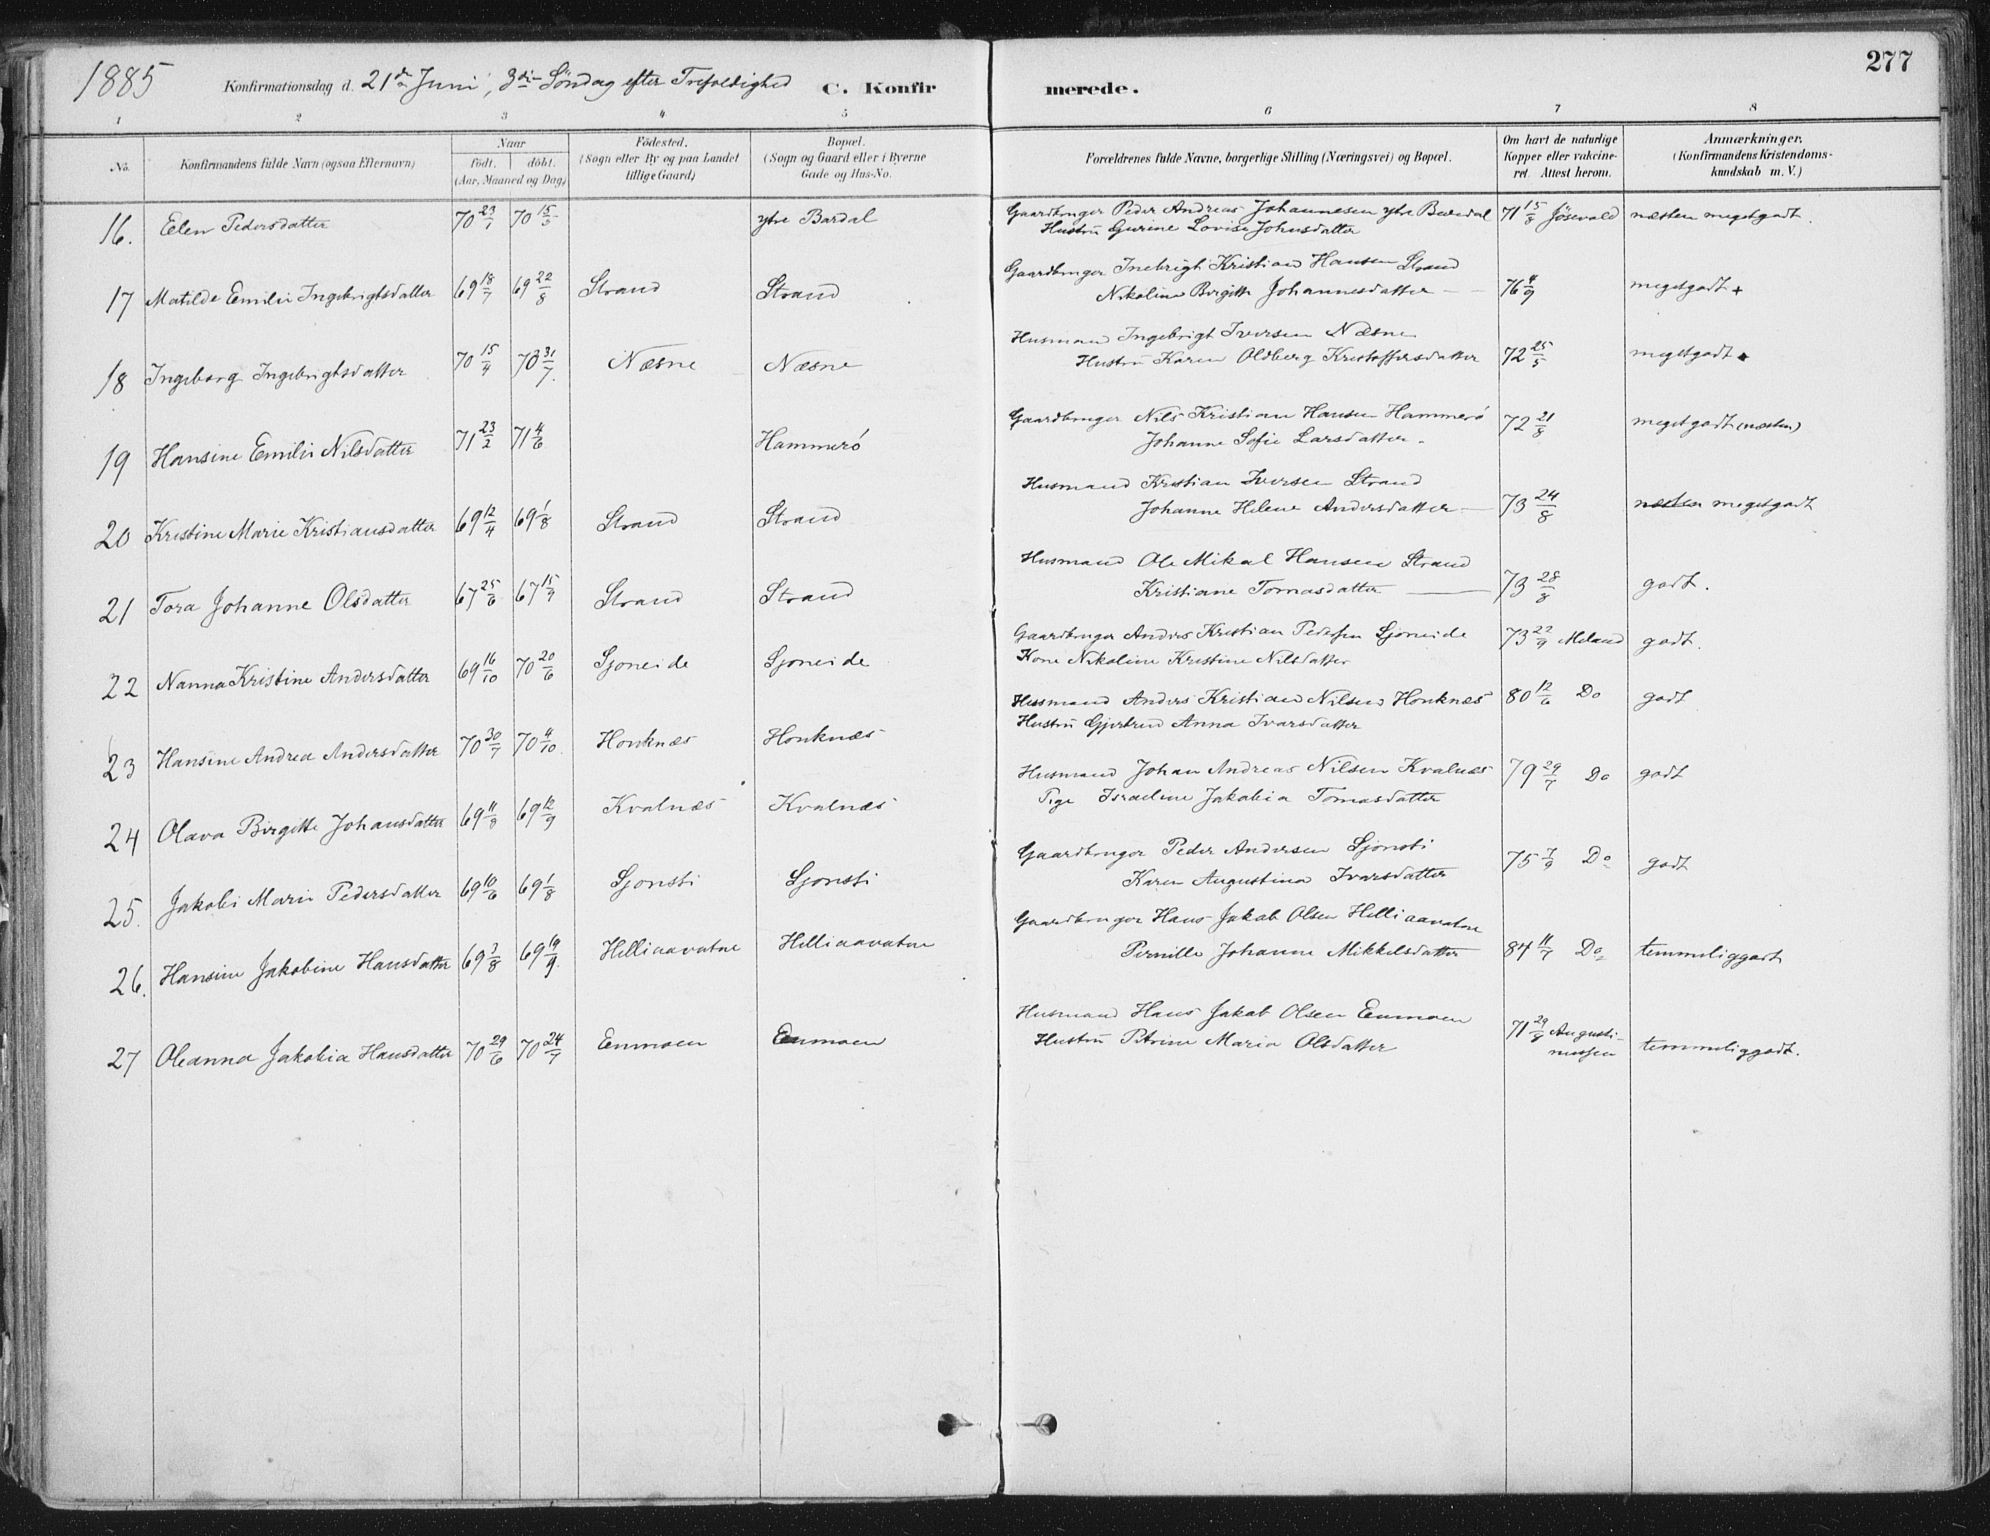 1885 Konfirmationsdag d. 21de Juni, 3die Söndag efter Trefoldighed C. Konfirmerede. 277
1 2 3 4 5 6 7 8
No. Konfirmandens fulde Navn (ogsaa Efternavn) Naar födt. döbt. (Aar, Maaned og Dag) Födested. (Sogn eller By og paa Landet tillige Gaard) Bopæl. (Sogn og Gaard eller i Byerne Gade og Hus-No. Forældrenes fulde Navne, borgerlige Stilling (Næringsvei) og Bopæl. Om havt de naturlige Kopper eller vakcineret. Attest herom. Anmærkninger. (Konfirmandens Kristendomskundskab m. V.)
16. Elen Pedersdatter 70 23/7 70 15/5 ytre Bardal Gaardbruger Peder Andreas Johannesen ytre Bardal 71 15/8 Jösevold næsten megetgodt.
Hustru Gurine Lovise Johnsdatter
17 Matilde Emilie Ingebrigtsdatter 69 18/7 69 22/8 Strand Strand Gaardbruger Inebrigt Kristian Hansen Strand 76 4/9 megetgodt +
Nikoline Birgitte Johannesdatter —
18 Ingeborg Ingebrigtsdatter 70 15/4 70 31/7. Næsne Næsne Husmand Ingebrigt Iversen Næsne 72 25/5 megetgodt
Hustru Karen Oldberg Kristoffersdatter
19 Hansine Emilie Nilsdatter 71 23/2 71 4/6 Hammerö Gaardbruger Nils Kristian Hansen Hammerö 72 21/8 megetgodt (næsten)
Johanne Sofie Larsdatter.
20 Kristine Marie Kristiansdatter 69 12/4 69 1/8 Strand Strand Husmand Kristian Iversen Strand 73 24/8 næsten megetgodt
Johanne Helene Andersdatter —
21 Tora Johanne Olsdatter 67 25/6 67 15/9 Strand Strand Husmand Ole Mikal Hansen Strand 73 28/8 godt.
Kristiane Tomasdatter —
22 Nanna Kristine Andersdatter 69 16/10 70 20/6 Sjoneide Sjoneide Gaardbruger Anders Kristian Pedersen Sjoneide 73 22/9 Meland godt.
Kone Nikoline Kristine Nilsdatter
23 Hansine Andrea Andersdatter 70 30/7 70 4/10. Honknæs Honknæs Husmand Anders Kristian Nilsen Honknæs 80 12/6 Do godt
Hustru Gjertrud Anna Ivarsdatter
24 Olava Birgitte Johansdatter 69 11/8 69 12/9 Kvalnæs Kvalnæs Husmand Johan Andreas Nilsen Kvalnæs 79 29/7 Do godt
Pige Israeline Jakobia Tomasdatter
25. Jakobi Marie Pedersdatter 69 10/6 69 1/8 Sjonsti Sjonsti Gaardbruger Peder Andersen Sjonsti 75 7/9 Do godt
Karen Augustina Ivarsdatter
26. Hansine Jakobine Hansdatter 69 3/8 69 19/9. Helliaavatne Helliaavatne Gaardbruger Hans Jakob Olsen Helliaavatne 84 11/7 Do temmeliggodt
Pernille Johanne Mikkelsdatter
27 Oleanna Jakobia Hansdatter 70 29/6 70 24/7 Enmoen Enmoen Husmand Hans Jakob Olsen Enmoen 71 29/8 Augustinussen temmeliggodt.
Hustru Petrine Maria Olsdatter